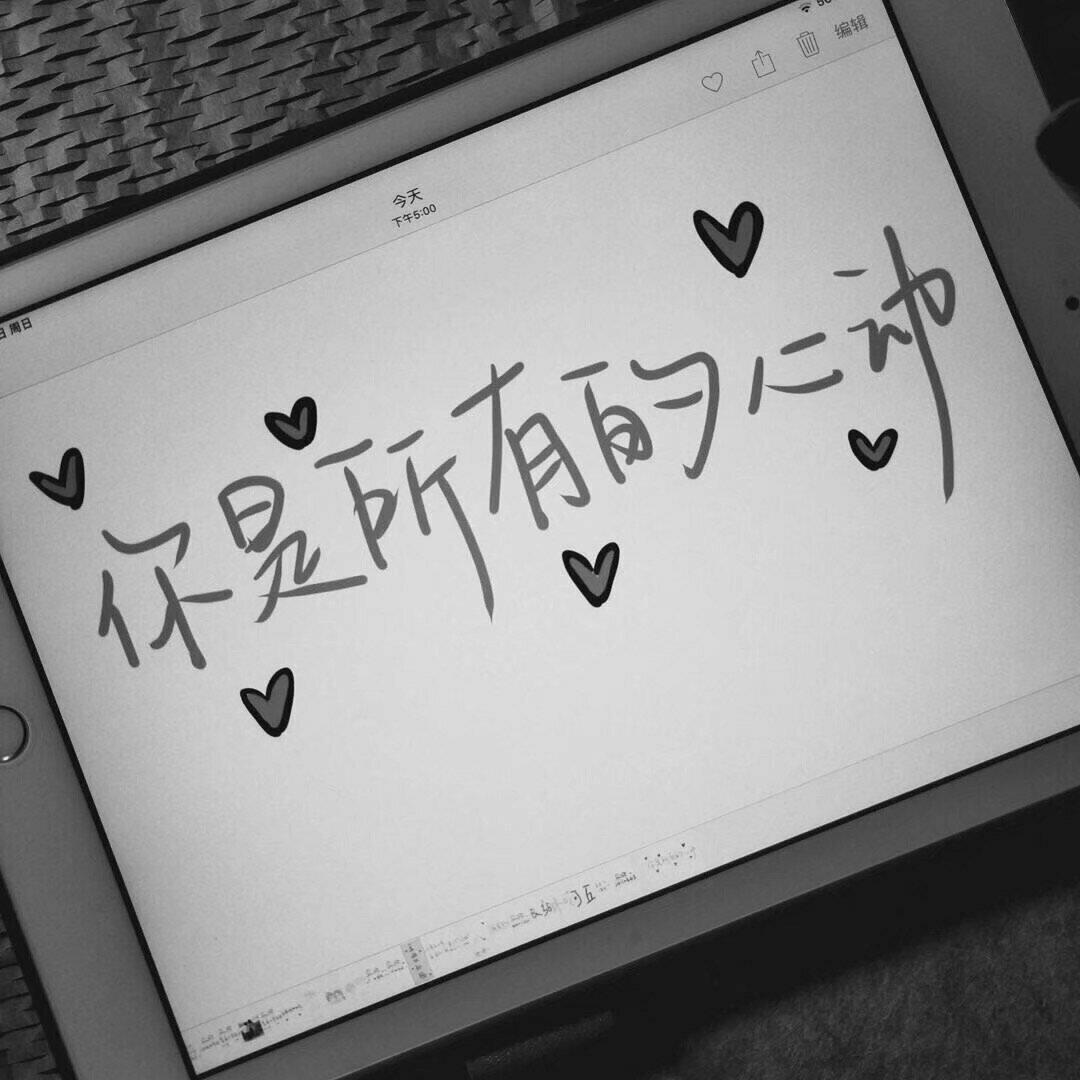 编辑
今天
下午5:00
日 周日
你是所有的心动